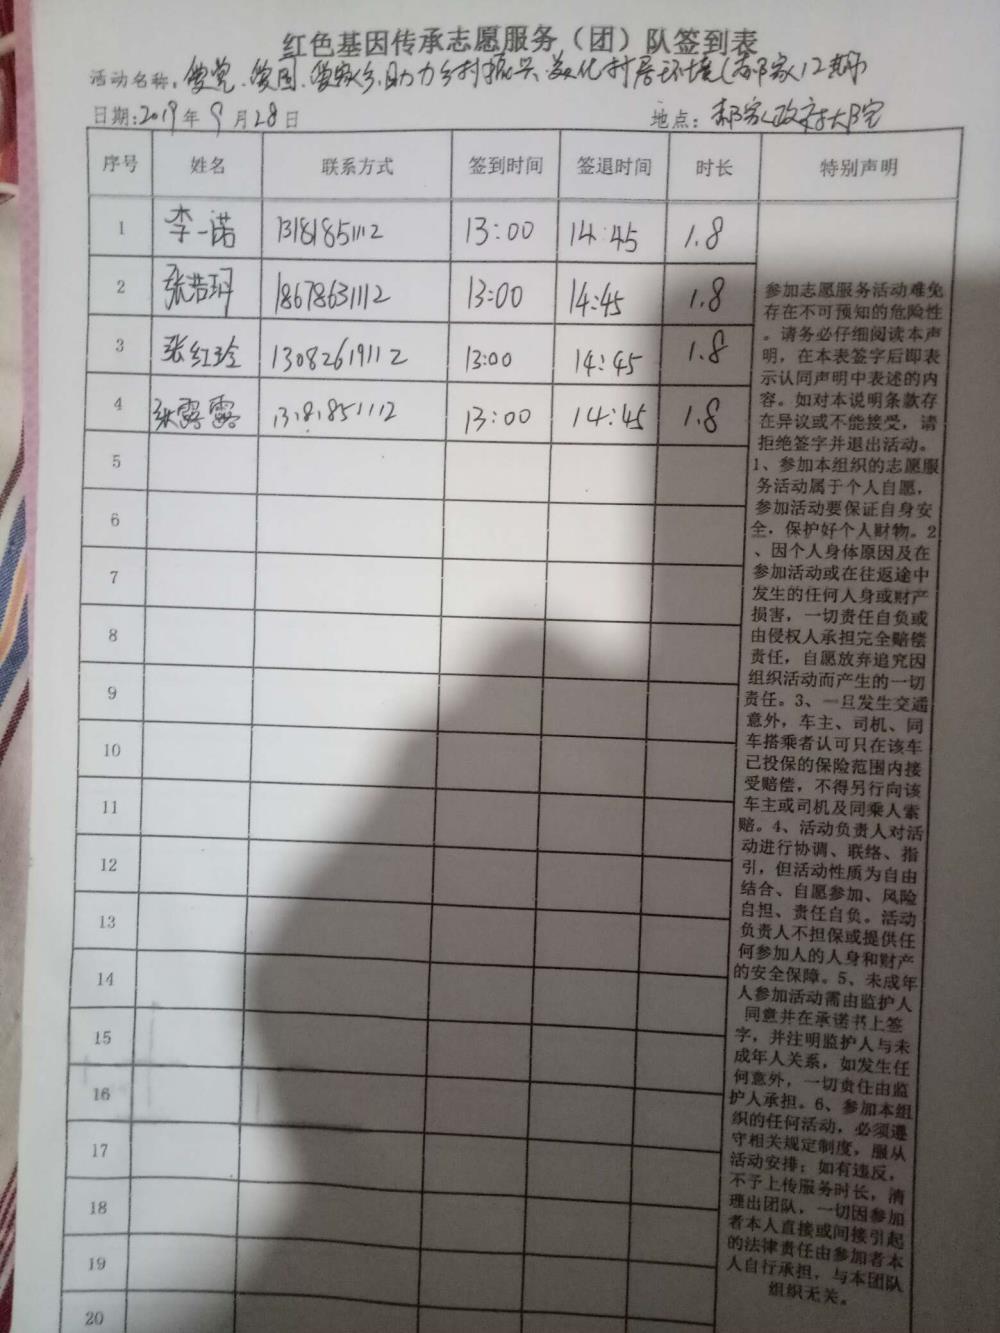 红色基因传承志愿服务（团）队签到表
活动名称：爱党、爱国、爱家乡，助力乡村振兴 美化村居环境（郝家12期）
日期：2019年9月28日 地点：郝家政府大院
序号 姓名 联系方式 签到时间 签退时间 时长 特别声明
1 李一诺 13181851112 13:00 14:45 1.8
2 张若玥 18678631112 13:00 14:45 1.8
3 张红玲 13082619112 13:00 14:45 1.8
4 张露露 13181851112 13:00 14:45 1.8
5
6
7
8
9
10
11
12
13
14
15
16
17
18
19
20
参加志愿服务活动难免
存在不可预知的危险性
。请务必仔细阅读本声
明，在本表签字后即表
示认同声明中表述的内
容。如对本说明条款存
在异议或不能接受，请
拒绝签字并退出活动。
1、参加本组织的志愿服
务活动属于个人自愿，
参加活动要保证自身安
全，保护好个人财物。2
、因个人身体原因及在
参加活动或在往返途中
发生的任何人身或财产
损害，一切责任自负或
由侵权人承担完全赔偿
责任，自愿放弃追究因
组织活动而产生的一切
责任。3、一旦发生交通
意外，车主、司机、同
车搭乘者认可只在该车
已投保的保险范围内接
受赔偿，不得另行向该
车主或司机及同乘人索
赔。4、活动负责人对活
动进行协调、联络、指
引，但活动性质为自由
结合、自愿参加、风险
自担、责任自负。活动
负责人不担保或提供任
何参加人的人身和财产
的安全保障。5、未成年
人参加活动需由监护人
同意并在承诺书上签
字，并注明监护人与未
成年人关系，如发生任
何意外，一切责任由监
护人承担。6、参加本组
织的任何活动，必须遵
守相关规定制度，服从
活动安排；如有违反，
不予上传服务时长，清
理出团队，一切因参加
者本人直接或间接引起
的法律责任由参加者本
人自行承担，与本团队
组织无关。